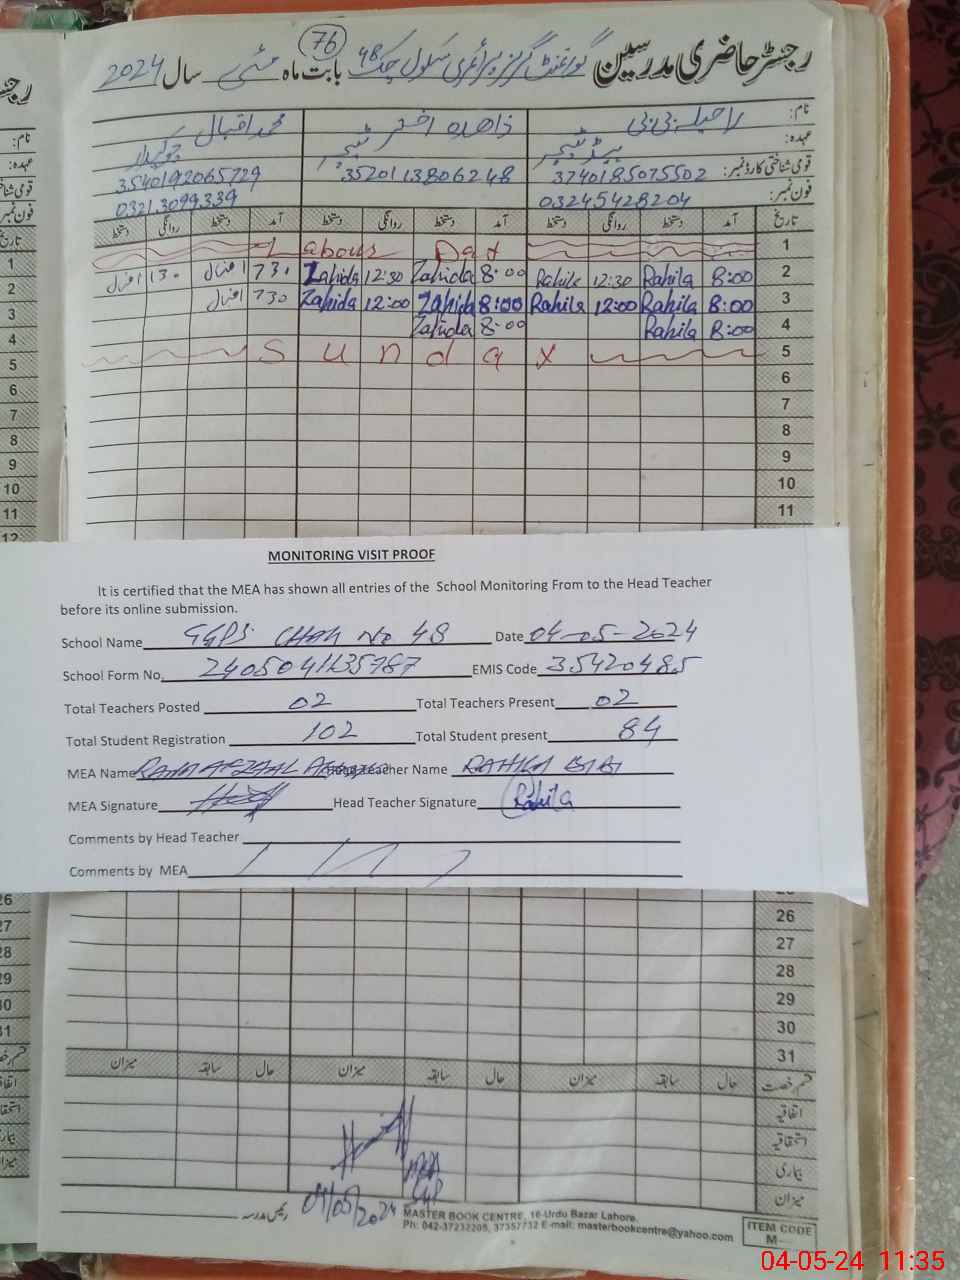 رجسٹر حاضری مدرسین گورنمنٹ گرلز پرائمری سکول چک 48 بابت ماہ مئی سال 2024
76
نام: راحیلہ بی بی زاھدہ اختر محمد اقبال
عہدہ: ہیڈ ٹیچر ٹیچر چوکیدار
قومی شناختی کارڈ نمبر: 3740185075502 3520113806248 3540192065729
فون نمبر: 03245428204 03213099339
تاریخ آمد دستخط روانگی دستخط آمد دستخط روانگی دستخط آمد دستخط روانگی دستخط
1 Labour Day
2 8:00 Rahila 12:30 Rahila 8:00 Zahida 12:30 Zahida 730 اقبال 130 اقبال
3 8:00 Rahila 12:00 Rahila 8:00 Zahida 12:00 Zahida 730 اقبال
4 8:00 Rahila 8:00 Zahida
5 Sunday
6
7
8
9
10
11
MONITORING VISIT PROOF
It is certified that the MEA has shown all entries of the School Monitoring From to the Head Teacher
before its online submission.
School Name GGPS CHAK No 48 Date 04-05-2024
School Form No. 2405041135787 EMIS Code 35420485
Total Teachers Posted 02 Total Teachers Present 02
Total Student Registration 102 Total Student present 84
MEA Name Head Teacher Name RAHILA BIBI
MEA Signature Head Teacher Signature Rahila
Comments by Head Teacher
Comments by MEA
26
27
28
29
30
31
قسم رخصت حال سابقہ میزان حال سابقہ میزان حال سابقہ میزان
اتفاقیہ
استحقاقیہ
بیماری
میزان
04/05/2024
رئیس مدرسہ
MASTER BOOK CENTRE, 16-Urdu Bazar Lahore.
Ph: 042-37232205, 37357732 E-mail: masterbookcentre@yahoo.com
ITEM CODE
M—
04-05-24 11:35